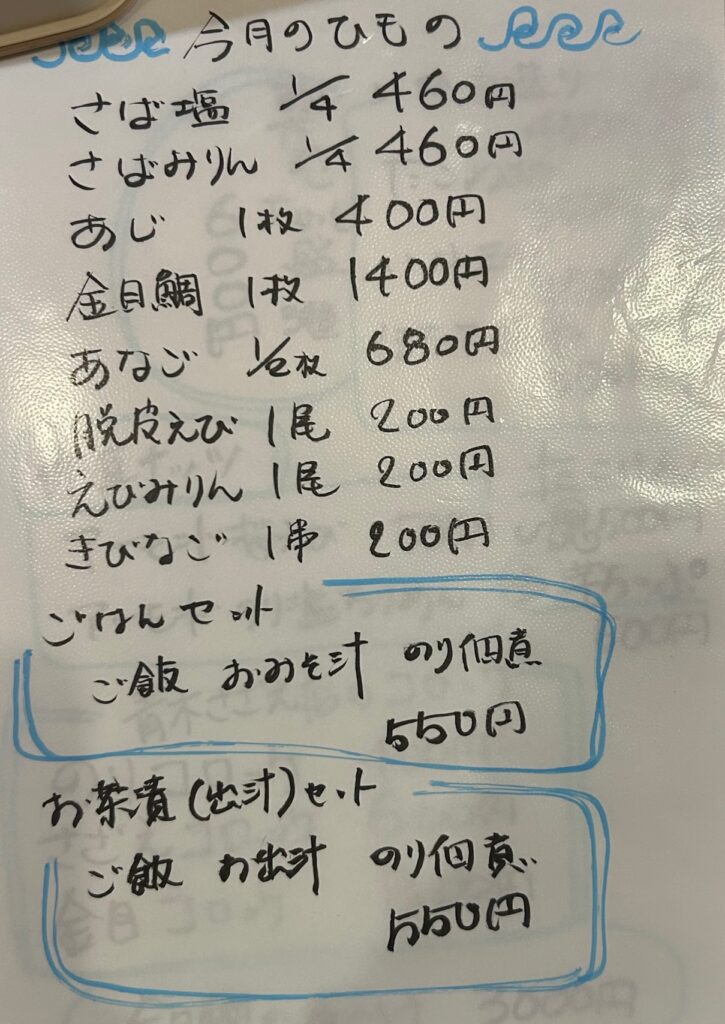 今月のひもの
さば塩 1/4 460円
さばみりん 1/4 460円
あじ 1枚 400円
金目鯛 1枚 1400円
あなご 1/2枚 680円
脱皮えび 1尾 200円
えびみりん 1尾 200円
きびなご 1串 200円
ごはんセット
ご飯 おみそ汁 のり佃煮
550円
お茶漬(出汁)セット
ご飯 お出汁 のり佃煮
550円